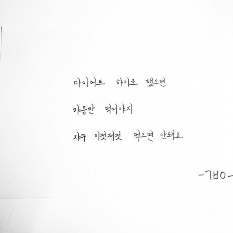 다이어트 하기로 했으면
마음만 먹어야지
자꾸 이것저것 먹으면 안돼요